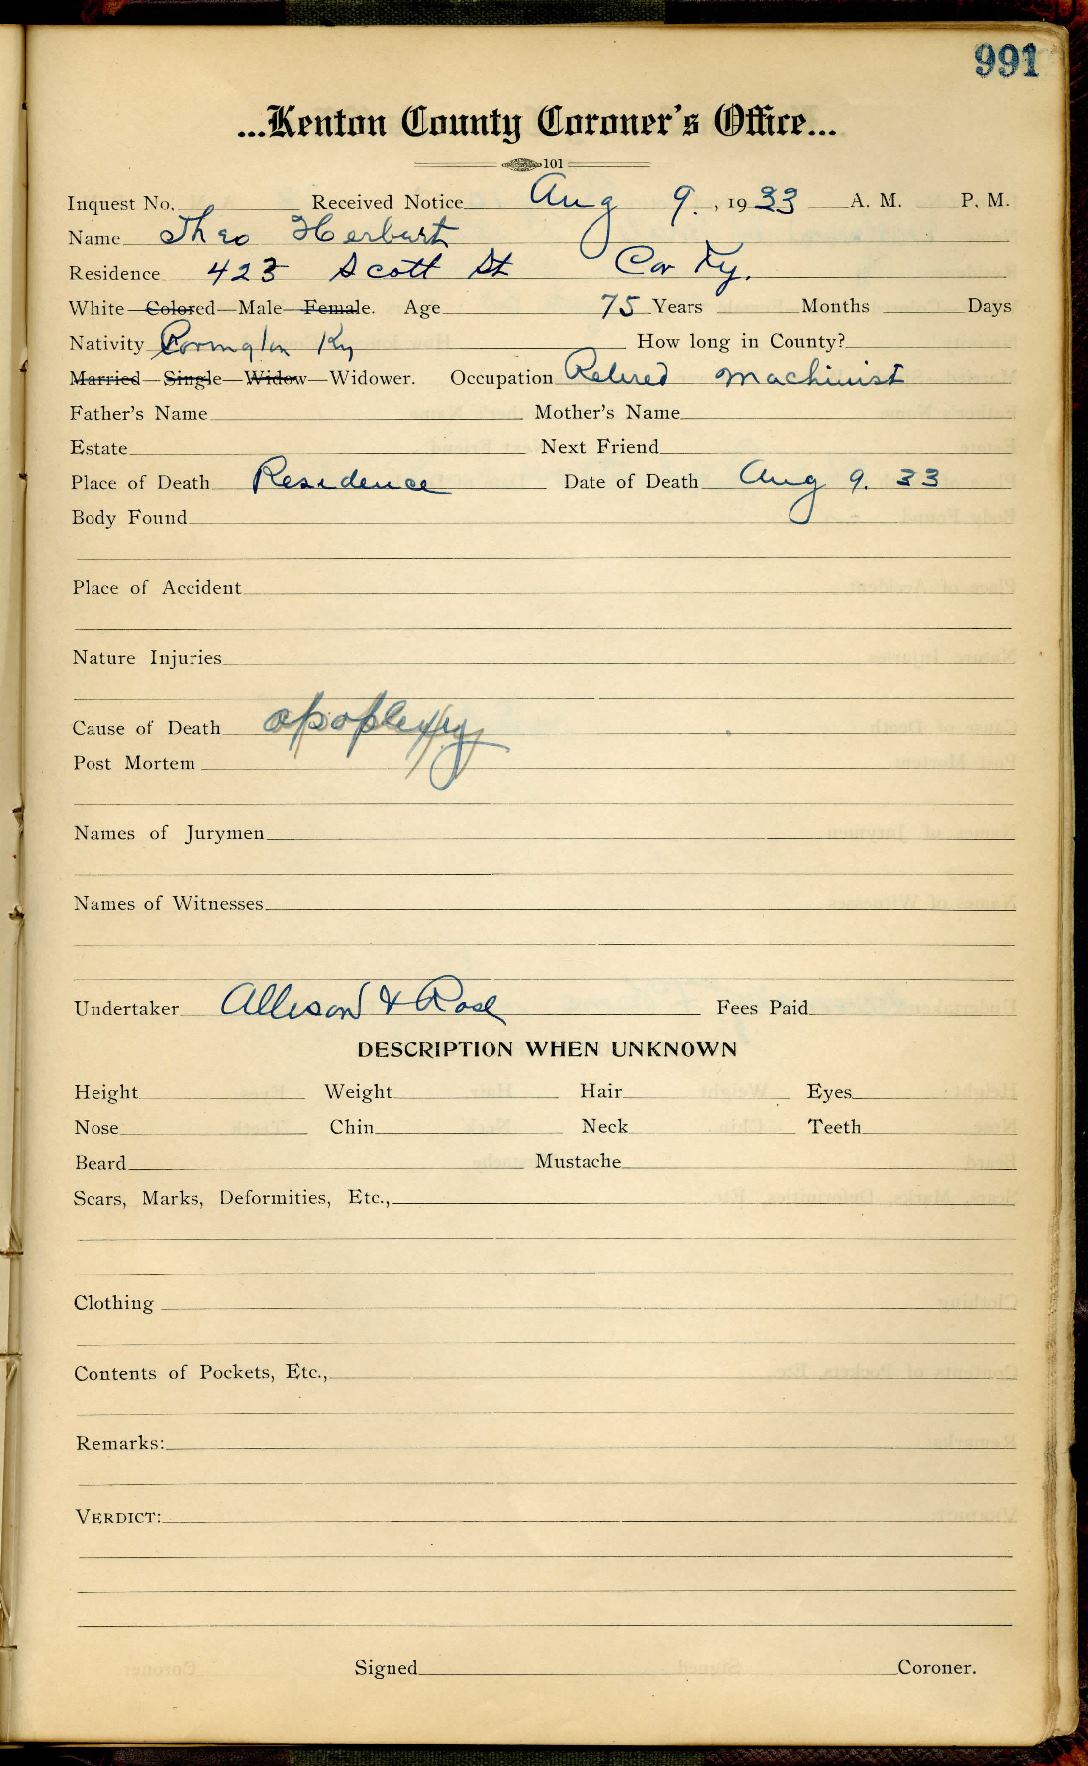 991
...Kenton County Coroner's Office...
101
Inquest No. Received Notice Aug 9. , 1933 A. M. P. M.
Name Theo Herbart
Residence 423 Scott St Cov Ky.
White—Colored—Male—Female. Age 75 Years Months Days
Nativity Covington Ky How long in County?
Married—Single—Widow—Widower. Occupation Retired machinist
Father's Name Mother's Name
Estate Next Friend
Place of Death Residence Date of Death Aug 9. 33
Body Found
Place of Accident
Nature Injuries
Cause of Death apoplexy
Post Mortem
Names of Jurymen
Names of Witnesses
Undertaker Allison & Rose Fees Paid
DESCRIPTION WHEN UNKNOWN
Height Weight Hair Eyes
Nose Chin Neck Teeth
Beard Mustache
Scars, Marks, Deformities, Etc.,
Clothing
Contents of Pockets, Etc.,
Remarks:
VERDICT:
Signed Coroner.